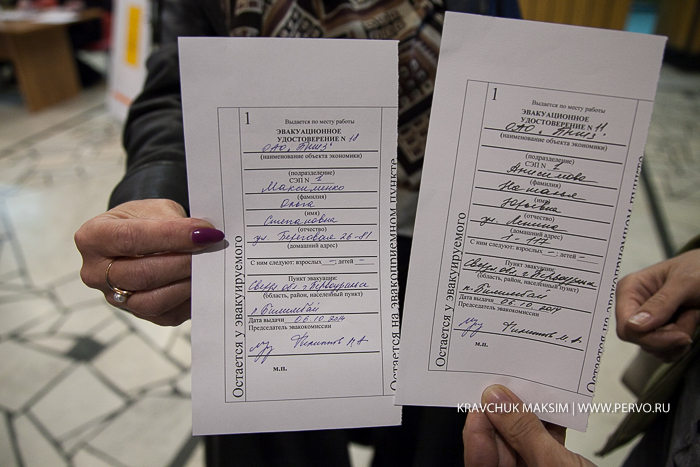 1
Выдается по месту работы
ЭВАКУАЦИОННОЕ
УДОСТОВЕРЕНИЕ N 18
ОАО "ПНТЗ"
(наименование объекта экономики)
(подразделение)
СЭП N 1
Максименко
(фамилия)
Ольга
(имя)
Степановна
(отчество)
ул. Береговая 26-81
(домашний адрес)
С ним следуют: взрослых – ; детей –
Пункт эвакуации:
г. Первоуральск
(область, район, населённый пункт)
п. Билимбай
Дата выдачи 06.10.2014
Председатель эвакокомиссии
Филиппов
м.п.
Остается у эвакуируемого
Остается на эвакоприемном пункте
1
Выдается по месту работы
ЭВАКУАЦИОННОЕ
УДОСТОВЕРЕНИЕ N 11
ОАО "ПНТЗ"
(наименование объекта экономики)
(подразделение)
СЭП N 1
Анисимова
(фамилия)
Наталья
(имя)
Юрьевна
(отчество)
ул. Ленина
(домашний адрес)
С ним следуют: взрослых – ; детей –
Пункт эвакуации:
(область, район, населённый пункт)
п. Билимбай
Дата выдачи 06.10.2014
Председатель эвакокомиссии
Филиппов
м.п.
Остается у эвакуируемого
Остается на эвакоприемном
KRAVCHUK MAKSIM | WWW.PERVO.RU